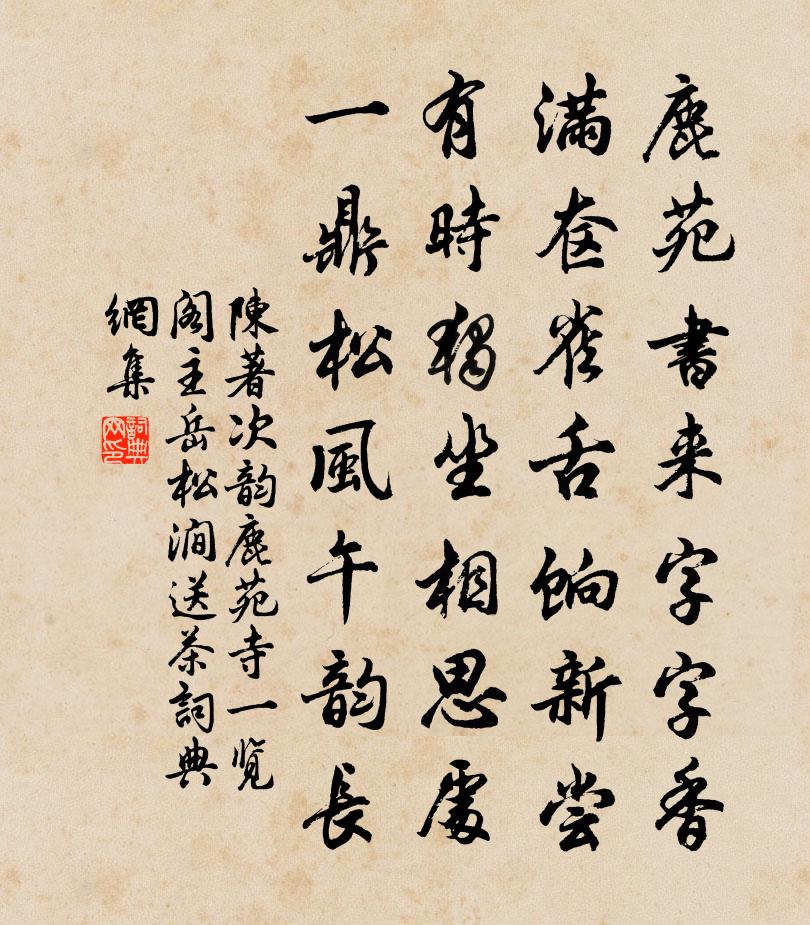 鹿苑書来字字香
满奁雀舌餉新尝
有時独坐相思處
一鼎松風午韵長
陳著次韵鹿苑寺一覧
阁主岳松澗送茶詞典
網集
詞典网印